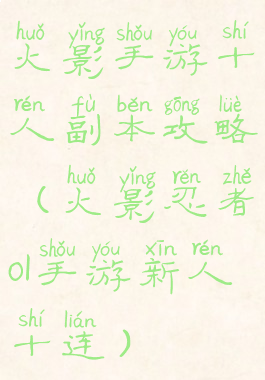 huǒ yǐng shǒu yóu shí
火影手游十
rén fù běn gōng lüè
人副本攻略
huǒ yǐng rěn zhě
(火影忍者
shǒu yóu xīn rén
ol手游新人
shí lián
十连)